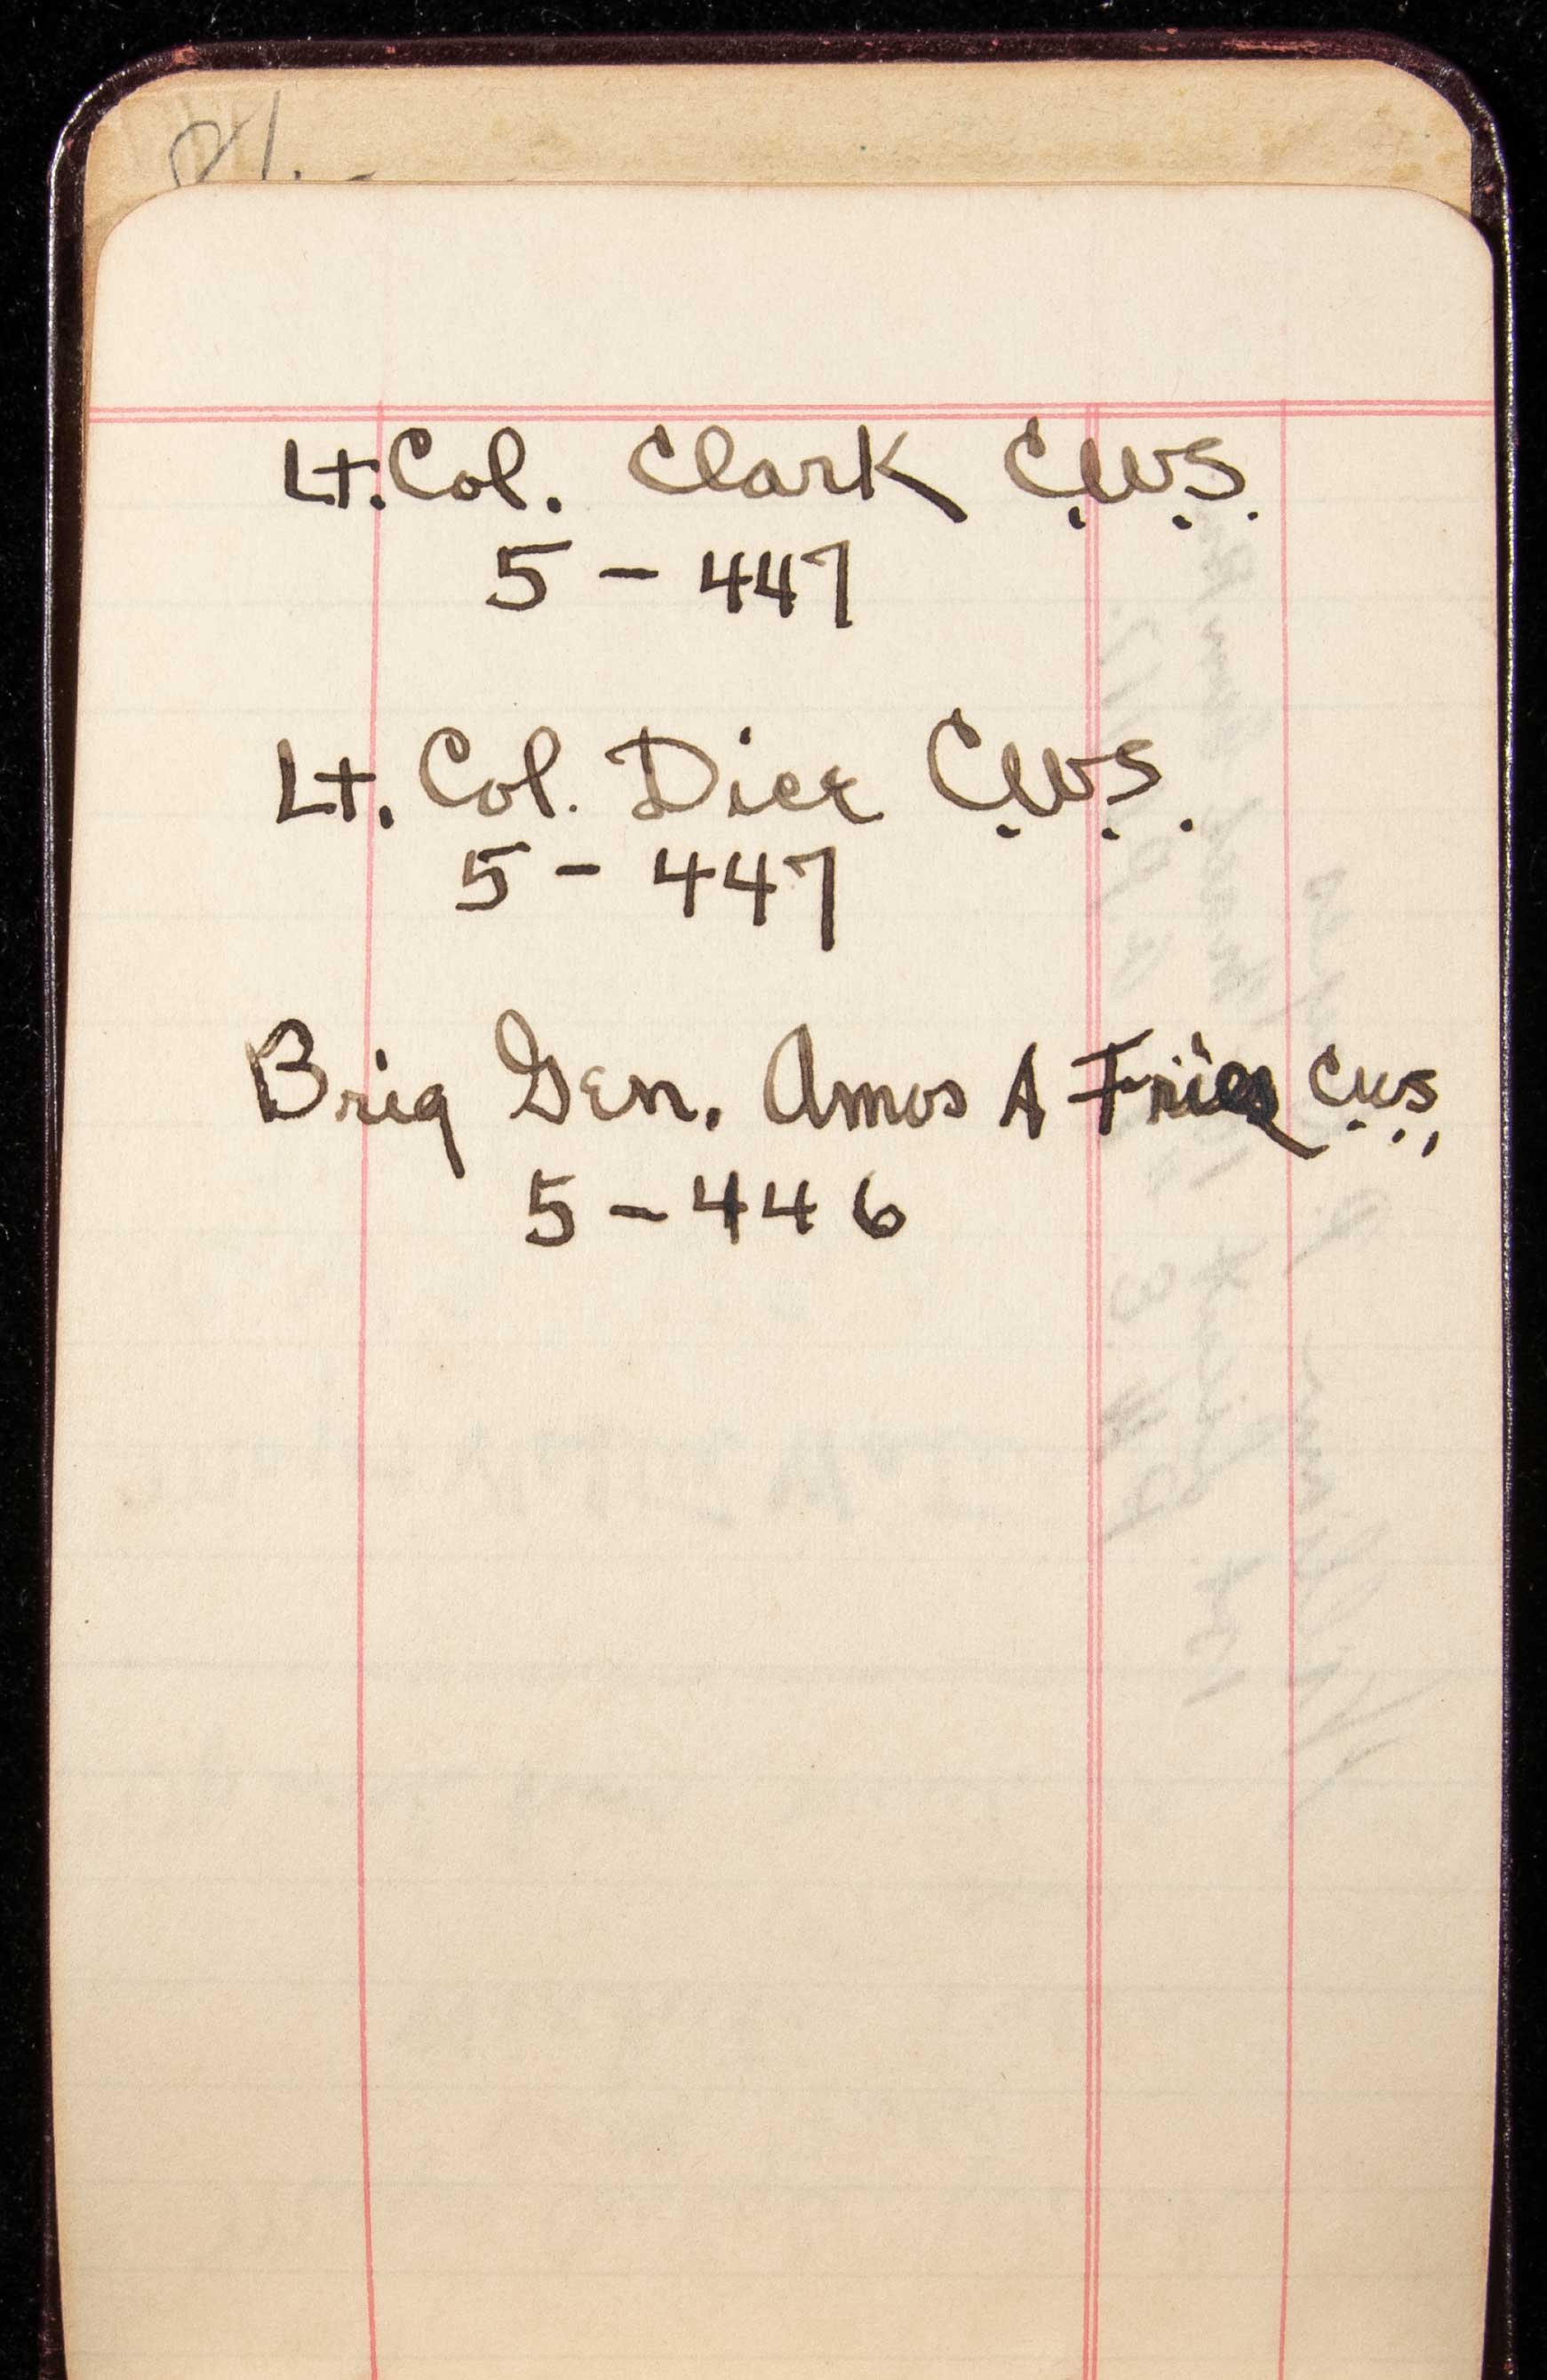 21.
Lt. Col. Clark C.W.S.
5 - 447
Lt. Col. Dice C.W.S.
5 - 447
Brig Gen. Amos A Fries C.W.S.
5 - 446